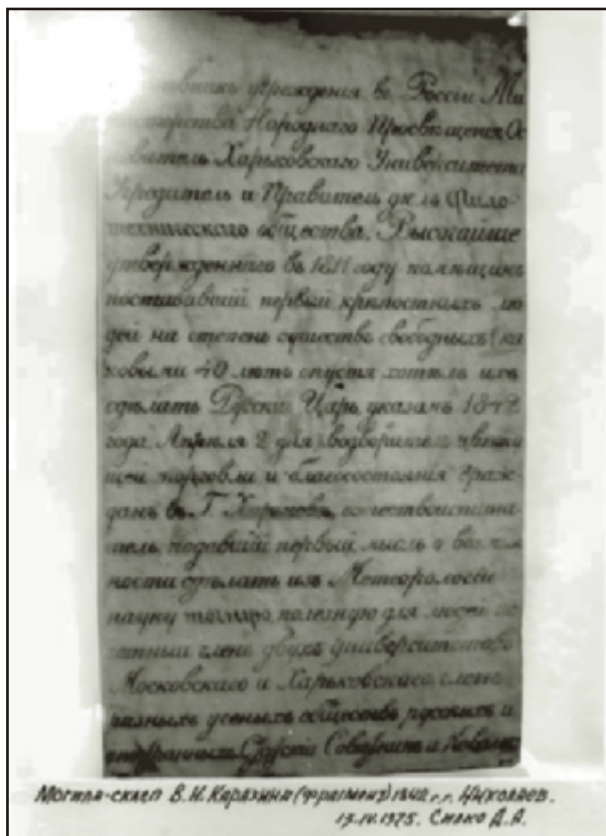 учреждения въ Россіи Ми
нистерства Народнаго Просвѣщенія Ос
нователь Харьковскаго Университета
Учредитель и Правитель дѣлъ Фило-
техническаго общества. Высочайше
утвержденнаго въ 1811 году помѣщикъ
поставившій первый крѣпостныхъ лю
дей на степень существъ свободныхъ (ка
ковыми 40 лѣтъ спустя хотѣлъ ихъ
сдѣлать Русскій Царь указамъ 1842
года Апрѣля 2 для
щей торговли и благосостоянія граж
данъ въ Г. Харьковѣ
тель подавшій первый мысль о возмож
ности сдѣлать изъ Метеорологіи
науку полезную для людей по
четный членъ двухъ университетовъ
Московскаго и Харьковскаго членъ
разныхъ ученыхъ обществъ русскихъ и
иностранныхъ Статскій Совѣтникъ и Кавалеръ
Могила-склеп В.Н. Каразина (фрагмент) 1842 г. г. Николаев.
19.IV.1975. Сп Д.А.